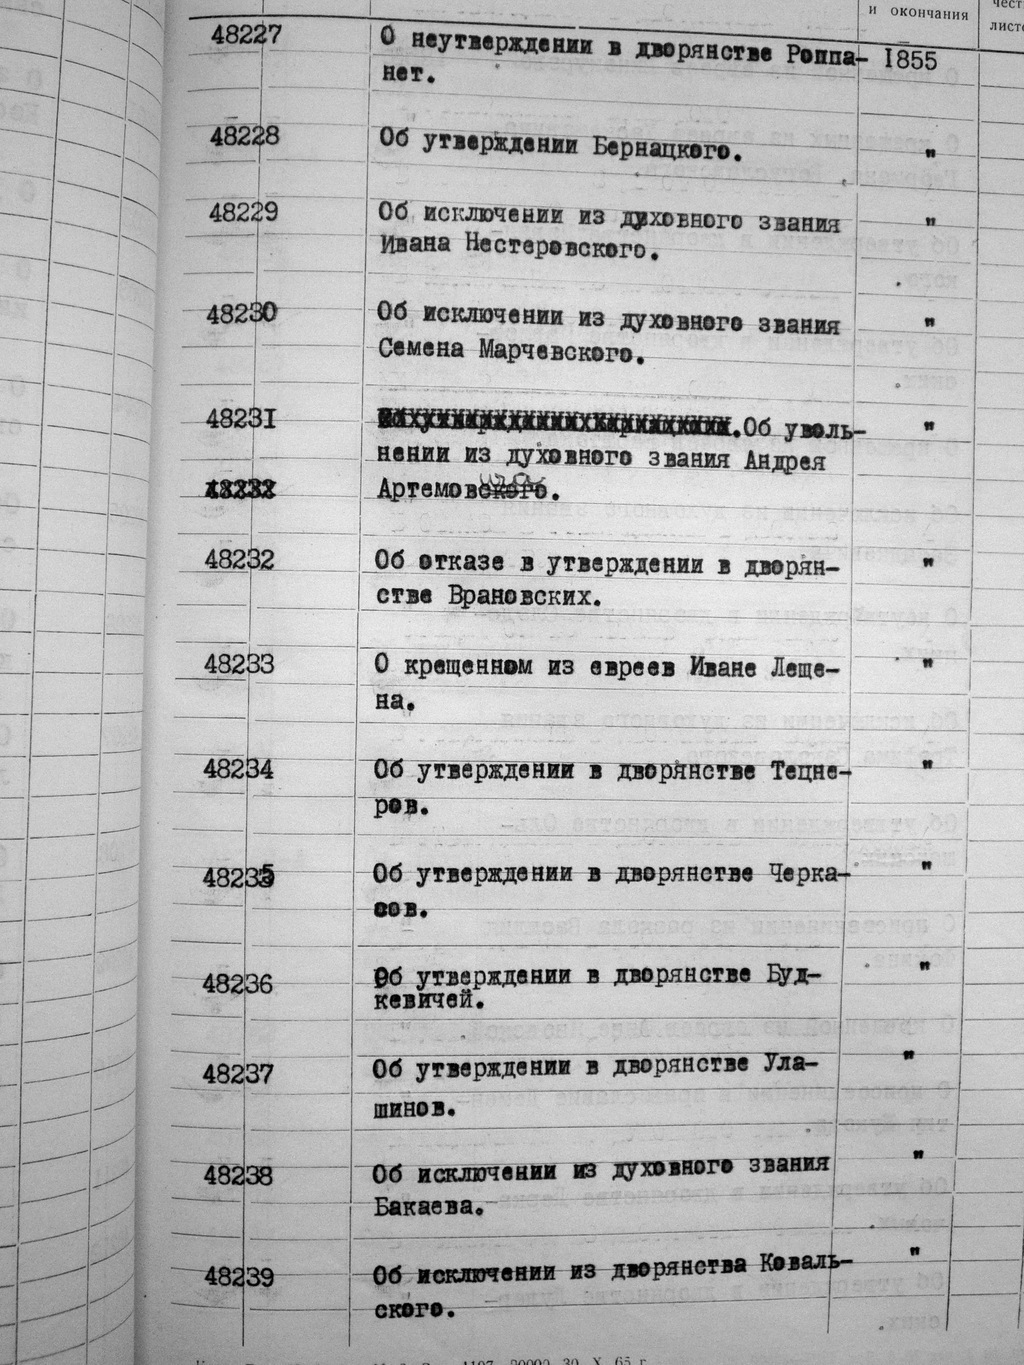 и окончания
листо
48227 О неутверждении в дворянстве Роппа- I855
нет.
48228 Об утверждении Бернацкого. "
48229 Об исключении из духовного звания "
Ивана Нестеровского.
48230 Об исключении из духовного звания "
Семена Марчевского.
48231 Об уволь- "
нении из духовного звания Андрея
48232 Артемовского.
48232 Об отказе в утверждении в дворян- "
стве Врановских.
48233 О крещенном из евреев Иване Леще- "
на.
48234 Об утверждении в дворянстве Тецне- "
ров.
48235 Об утверждении в дворянстве Черка- "
сов.
48236 Об утверждении в дворянстве Буд- "
кевичей.
48237 Об утверждении в дворянстве Ула- "
шинов.
48238 Об исключении из духовного звания "
Бакаева.
48239 Об исключении из дворянства Коваль- "
ского.